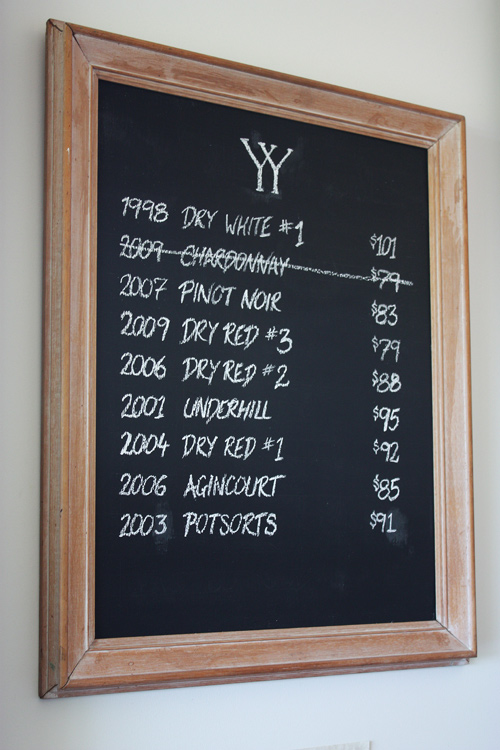 YY
1998 DRY WHITE #1 $101
2009 CHARDONNAY $79
2007 PINOT NOIR $83
2009 DRY RED #3 $79
2006 DRY RED #2 $88
2001 UNDERHILL $95
2004 DRY RED #1 $92
2006 AGINCOURT $85
2003 POTSORTS $91